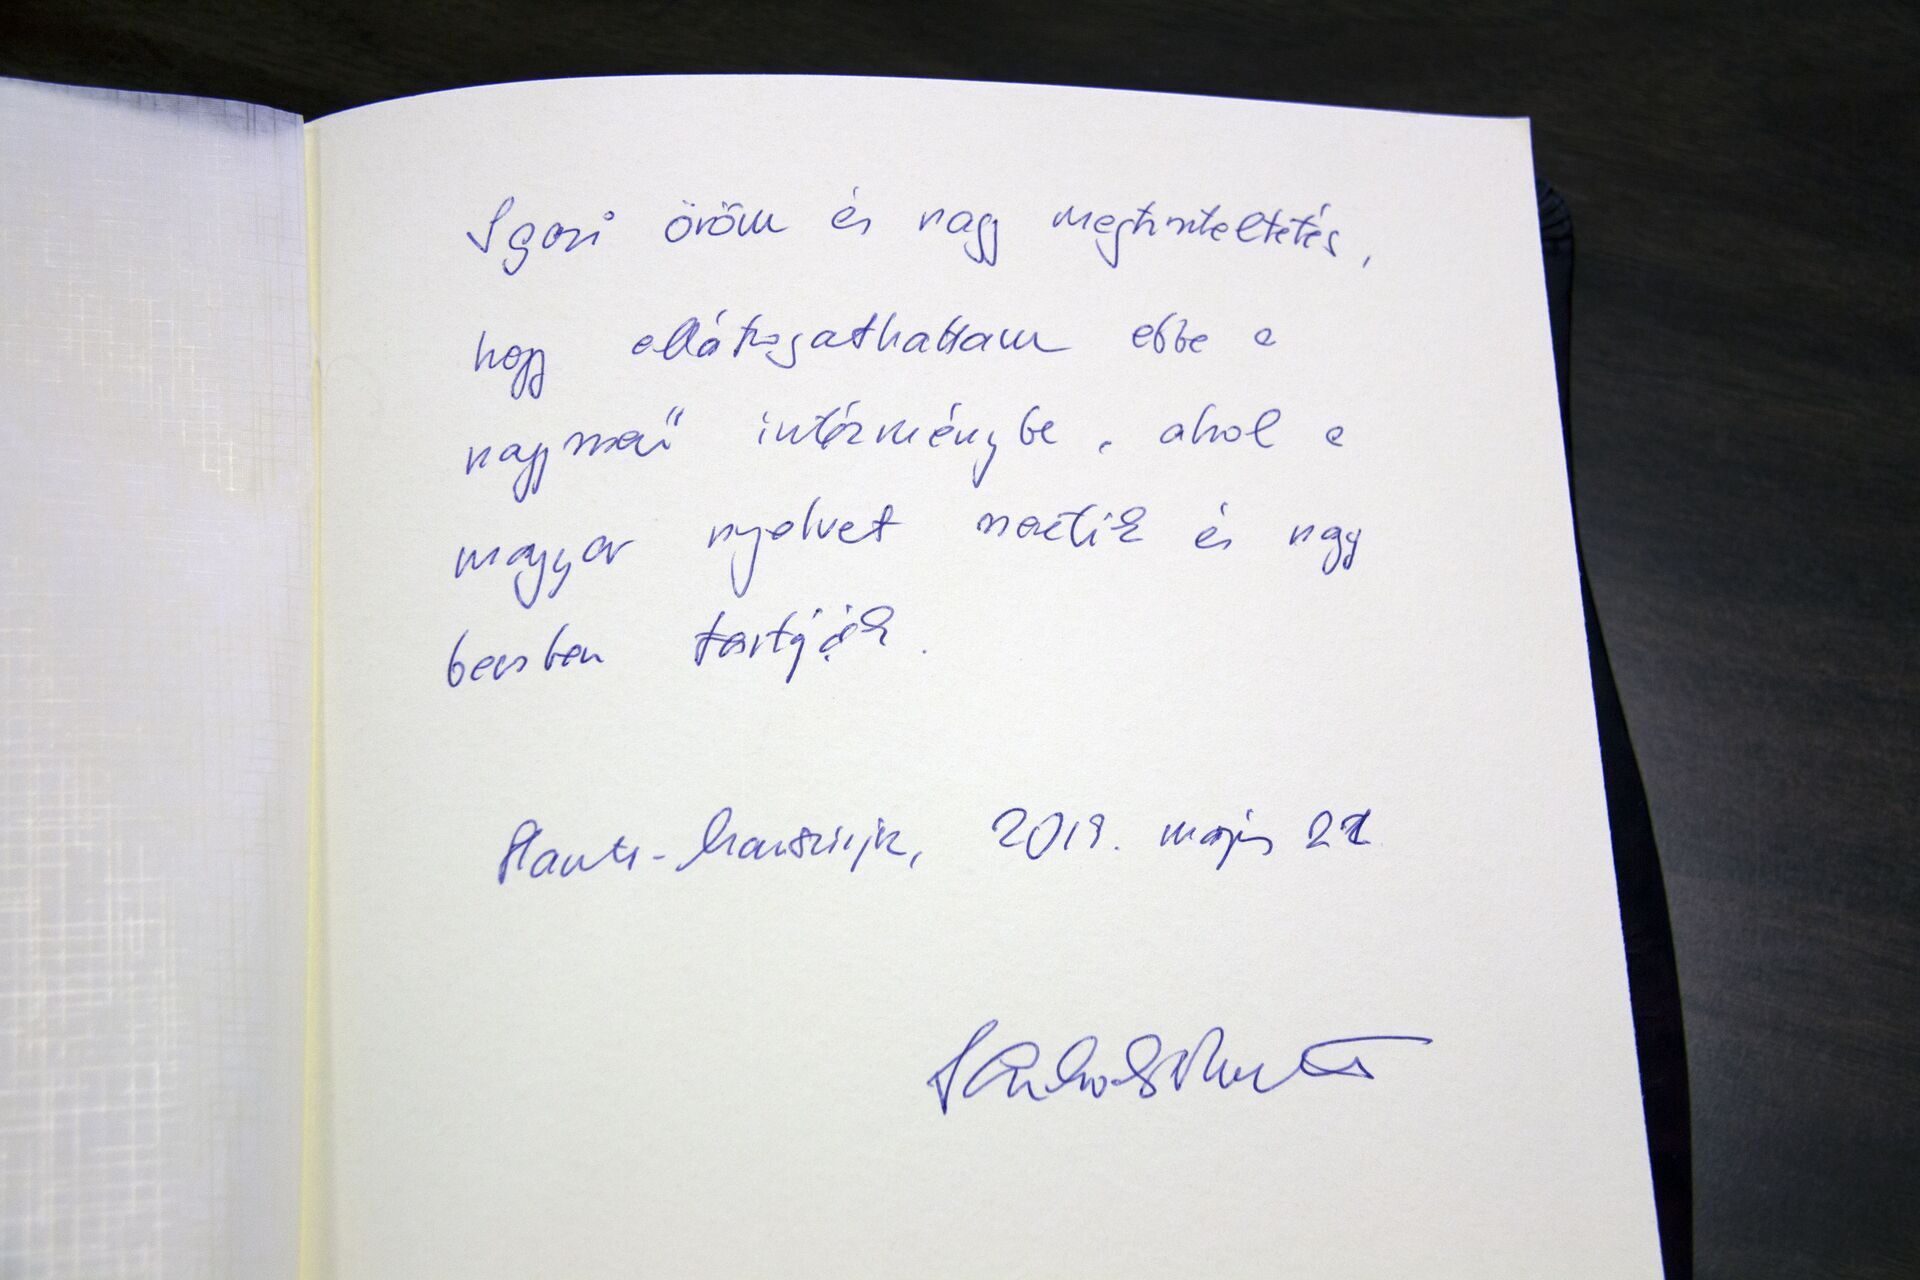 Igazi öröm és nagy megtiszteltetés,
hogy ellátogathattam ebbe a
nagyszerű intézménybe, ahol a
magyar nyelvet szeretik és nagy
becsben tartják.
2019. május 21